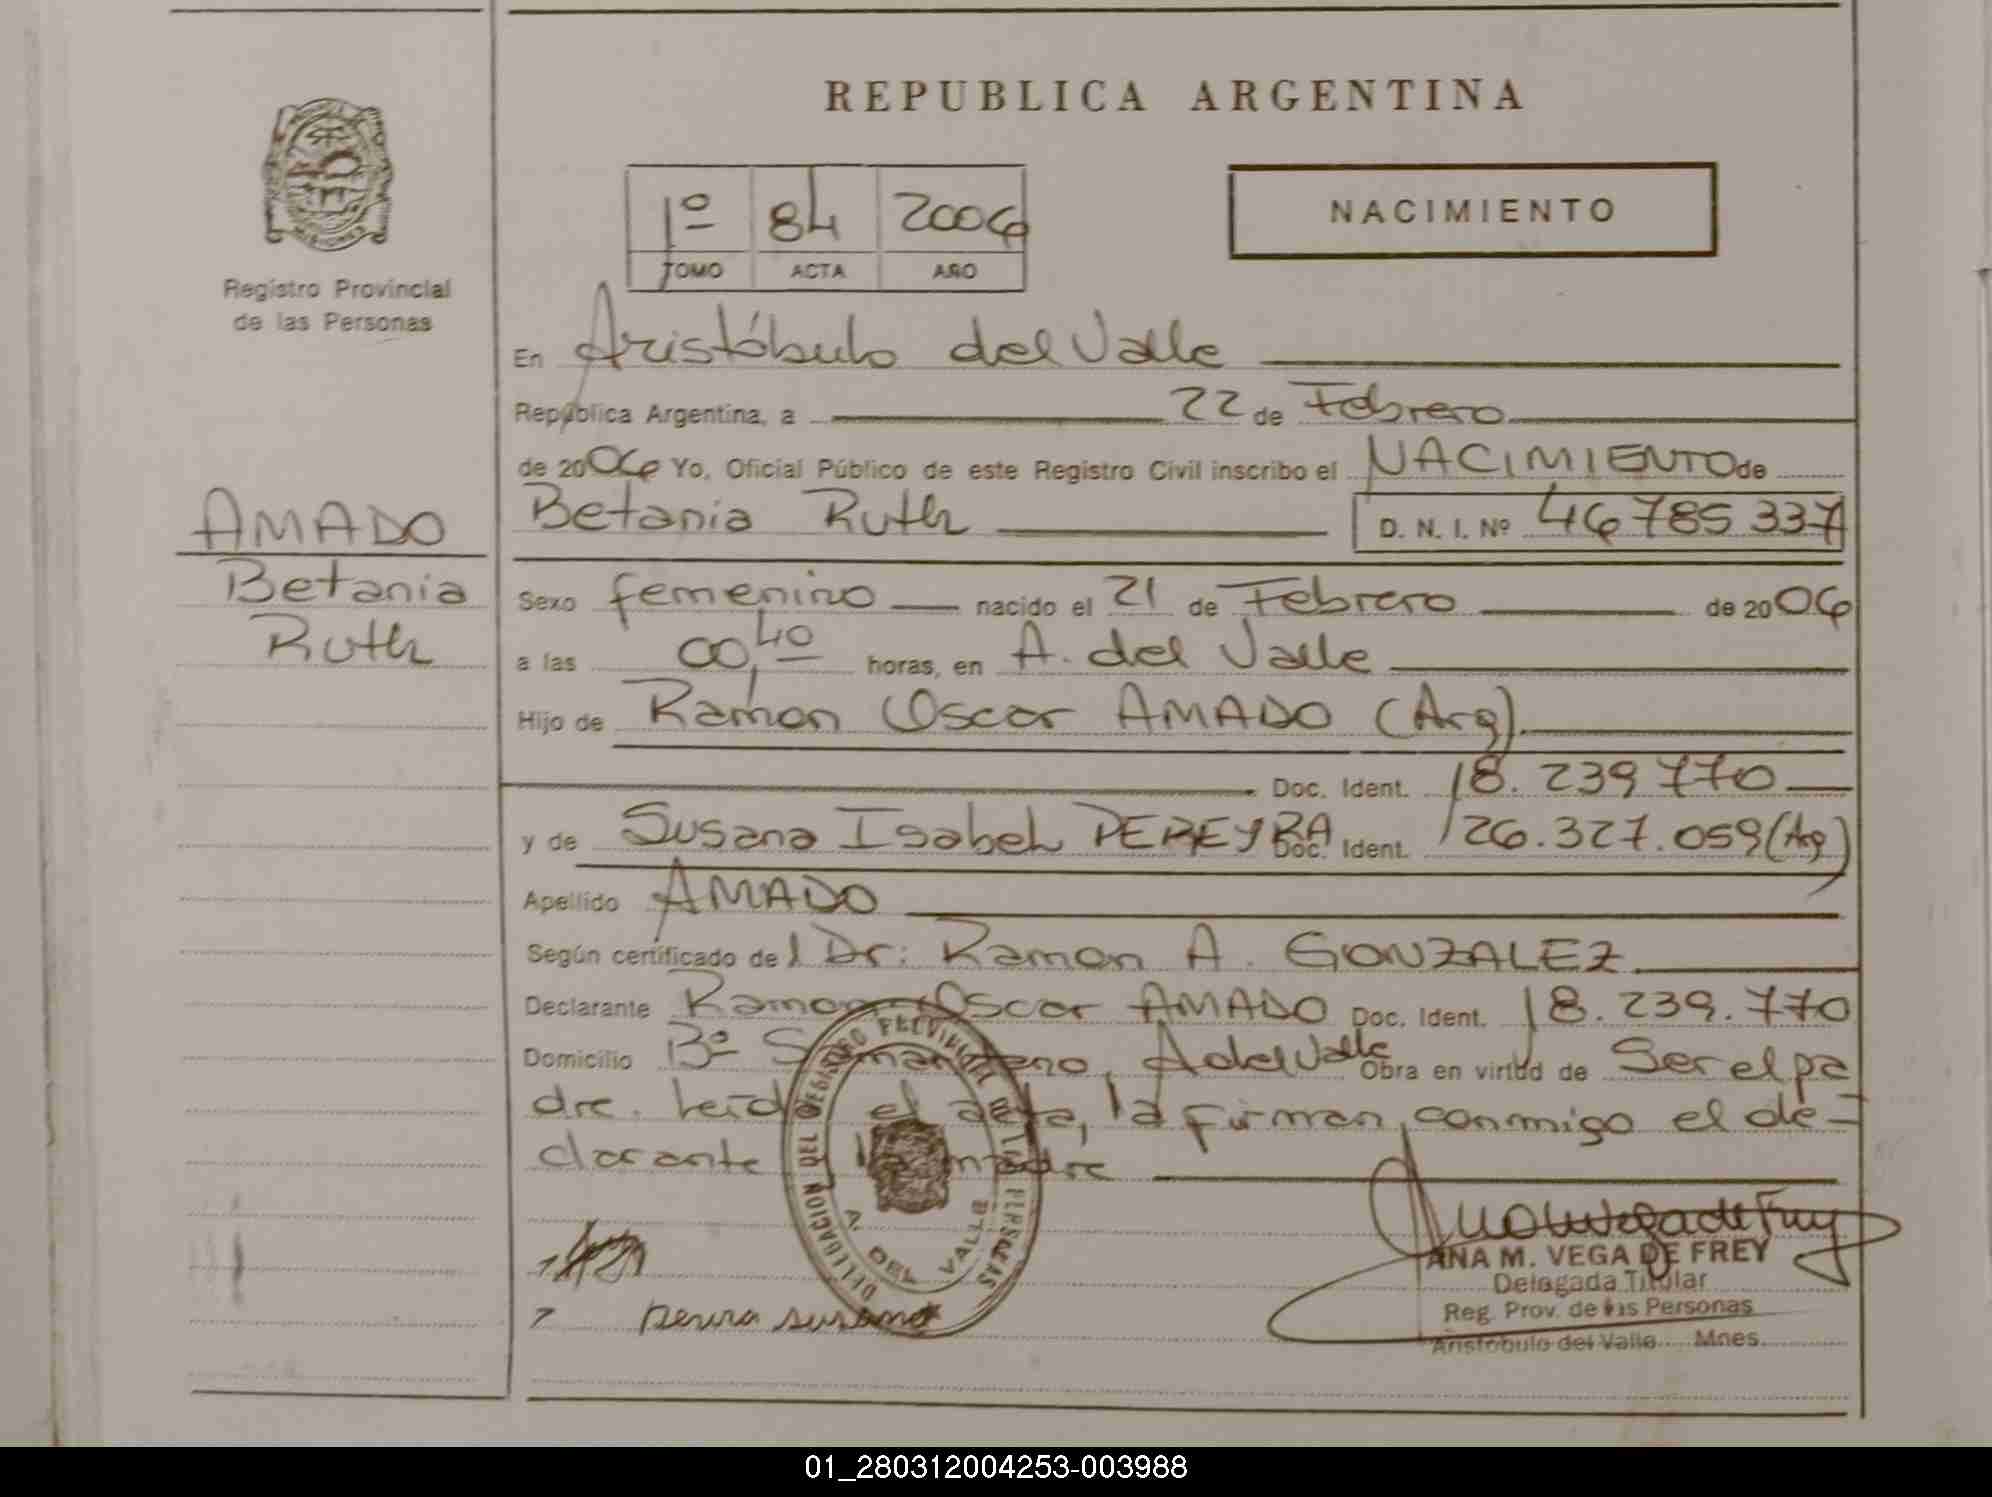 REPUBLICA ARGENTINA
1º 84 2006
TOMO ACTA AÑO
NACIMIENTO
MISIONES
Registro Provincial
de las Personas
AMADO
Betania
Ruth
En Aristóbulo del Valle
República Argentina, a 22 de Febrero
de 2006 Yo, Oficial Público de este Registro Civil inscribo el NACIMIENTO de
Betania Ruth D. N. I. Nº 46785337
Sexo femenino nacido el 21 de Febrero de 2006
a las 00,40 horas, en A. del Valle
Hijo de Ramon Oscar AMADO (Arg)
Doc. Ident. 18.239770
y de Susana Isabel PEREYRA Doc. Ident. 26.327.059 (Arg)
Apellido AMADO
Según certificado del Dr: Ramon A. GONZALEZ
Declarante Ramon Oscar AMADO Doc. Ident. 18.239.770
Domicilio Bº A del Valle Obra en virtud de Ser el pa
dre. Leída el acta, la firman conmigo el de-
clarante madre
DELEGACION DEL REGISTRO PROVINCIAL DE LAS PERSONAS
A. DEL VALLE
susana
ANA M. VEGA DE FREY
Delegada Titular
Reg. Prov. de las Personas
Aristobulo del Valle Mnes.
01_280312004253-003988